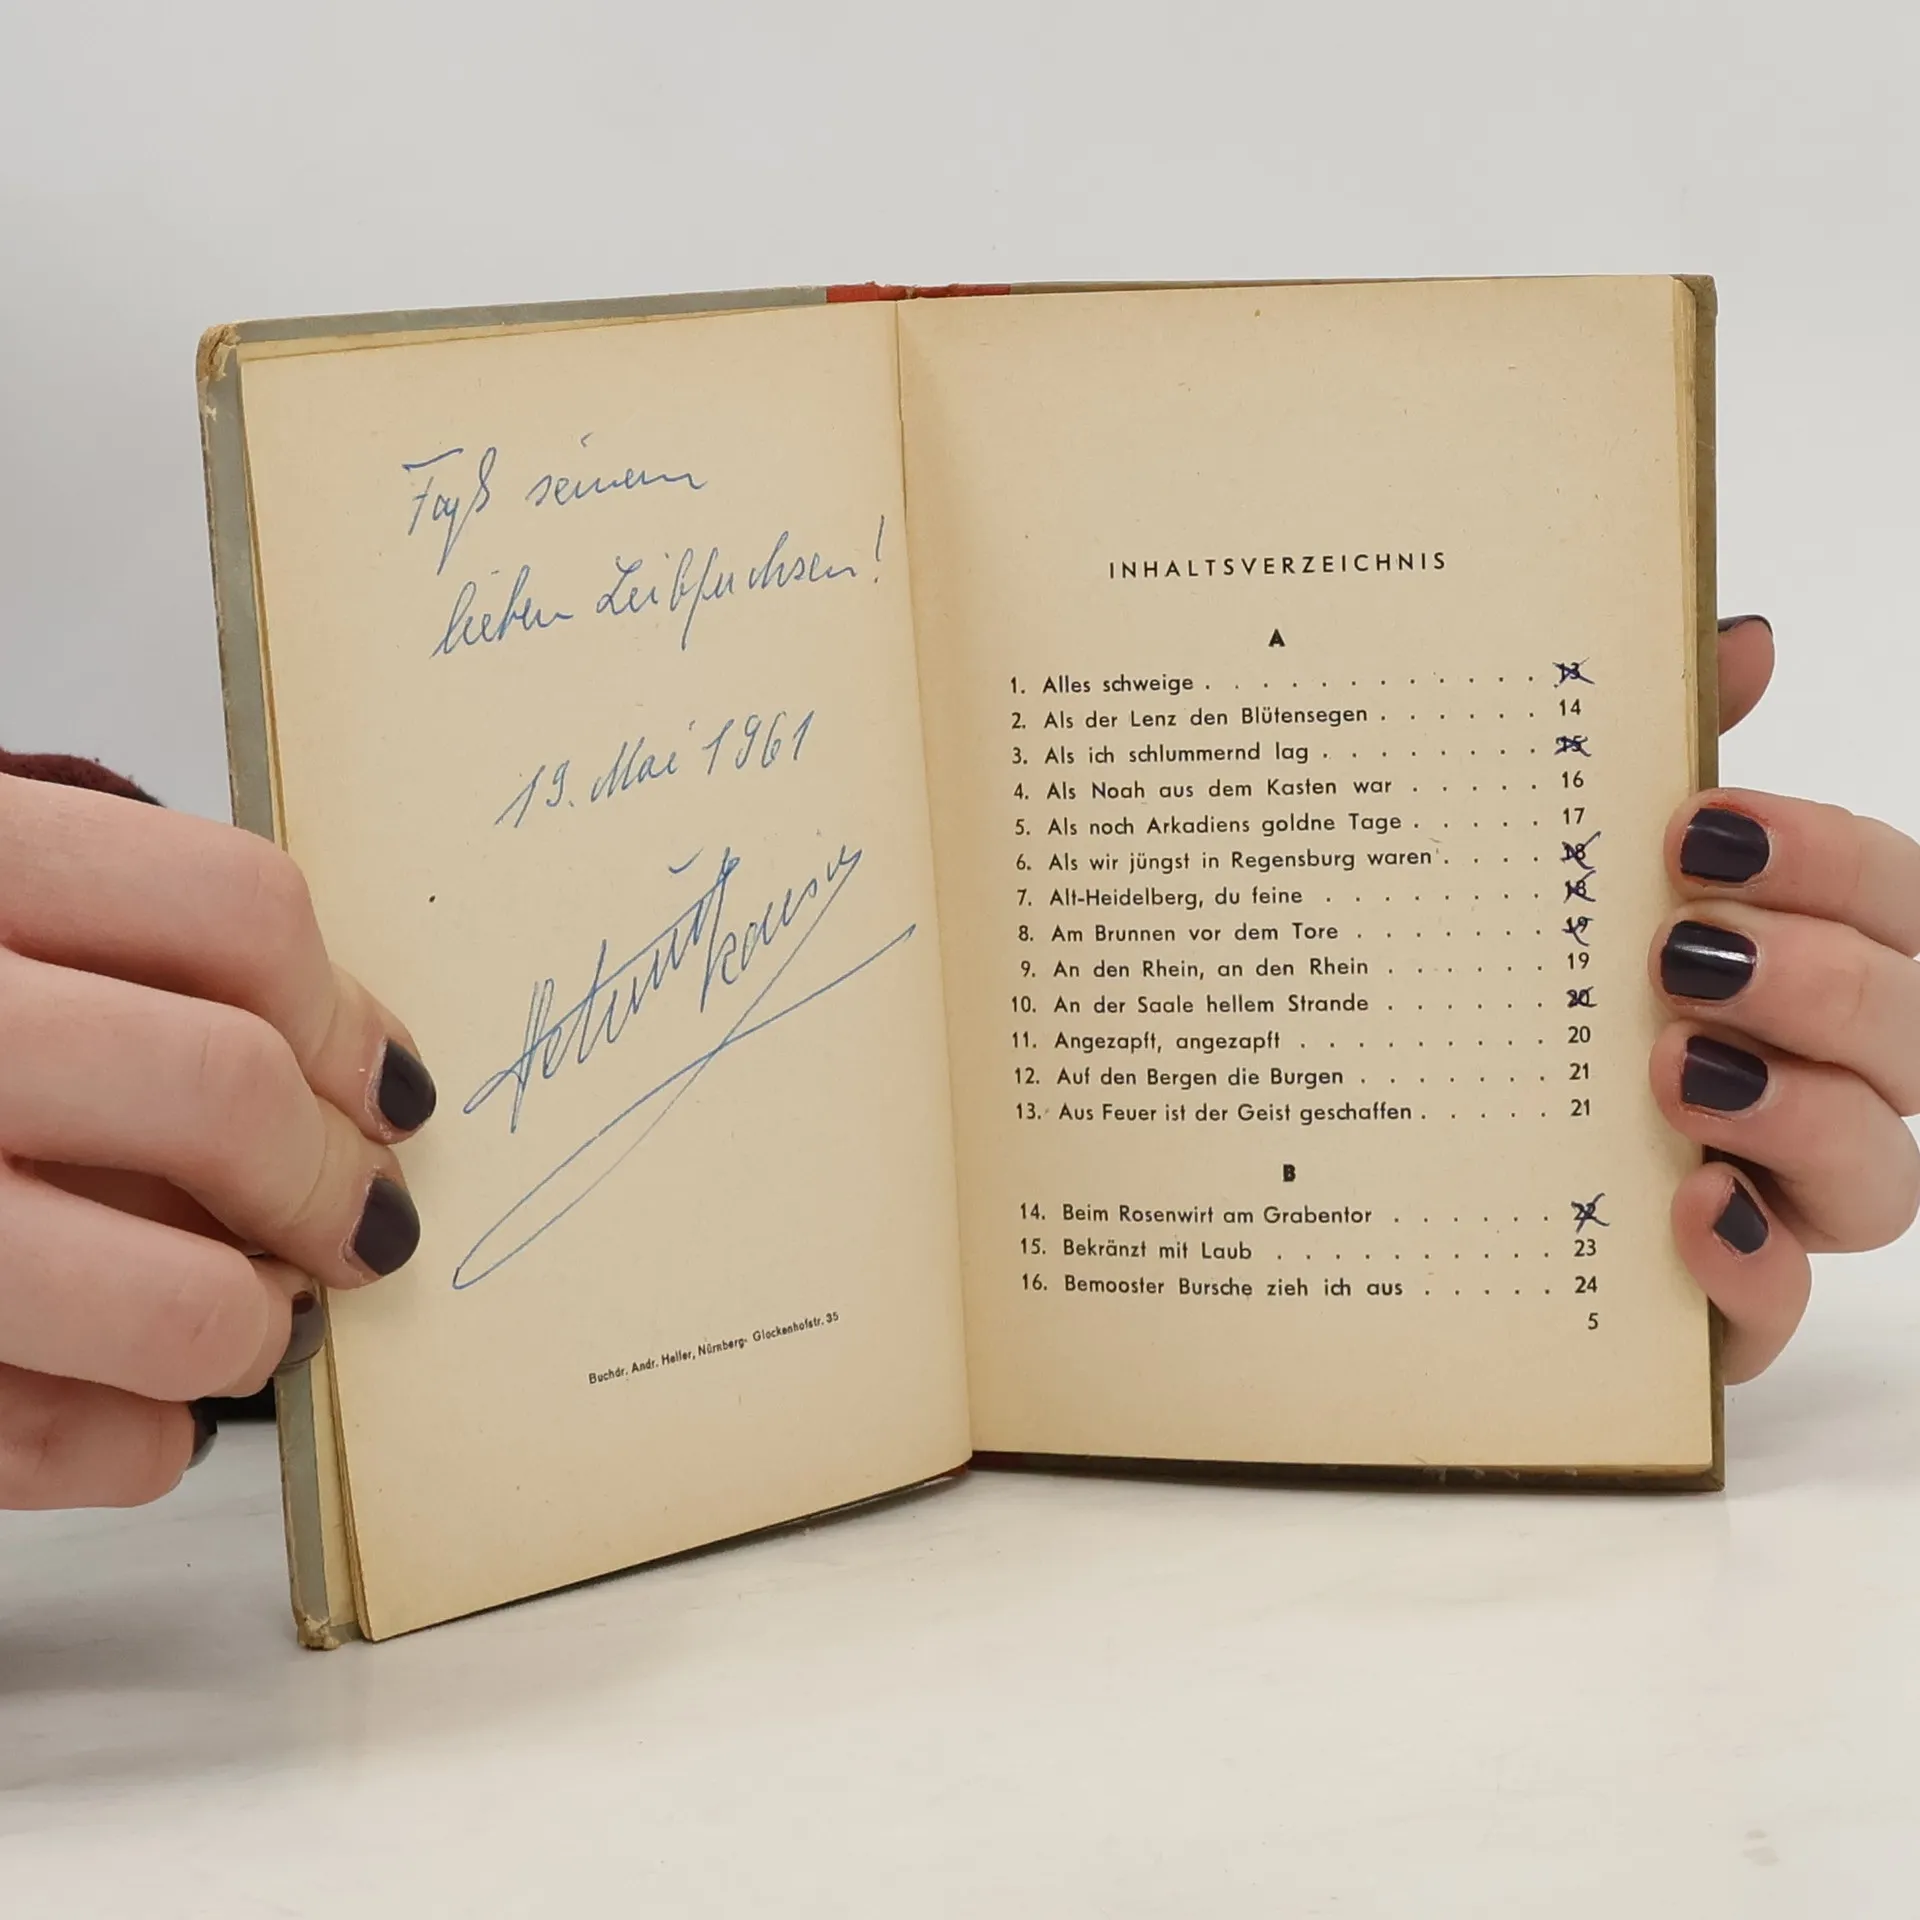 seinem
lieben Leibfuchsen!
19. Mai 1961
Buchdr. Andr. Heller, Nürnberg- Glockenhofstr. 35
INHALTSVERZEICHNIS
A
1. Alles schweige . . . . . . . . . . . . 13
2. Als der Lenz den Blütensegen . . . . . . 14
3. Als ich schlummernd lag . . . . . . . . 15
4. Als Noah aus dem Kasten war . . . . . 16
5. Als noch Arkadiens goldne Tage . . . . . 17
6. Als wir jüngst in Regensburg waren . . . . 18
7. Alt-Heidelberg, du feine . . . . . . . . 18
8. Am Brunnen vor dem Tore . . . . . . . 19
9. An den Rhein, an den Rhein . . . . . . 19
10. An der Saale hellem Strande . . . . . . 20
11. Angezapft, angezapft . . . . . . . . . 20
12. Auf den Bergen die Burgen . . . . . . . 21
13. Aus Feuer ist der Geist geschaffen . . . . . 21
B
14. Beim Rosenwirt am Grabentor . . . . . . 22
15. Bekränzt mit Laub . . . . . . . . . . 23
16. Bemooster Bursche zieh ich aus . . . . . 24
5